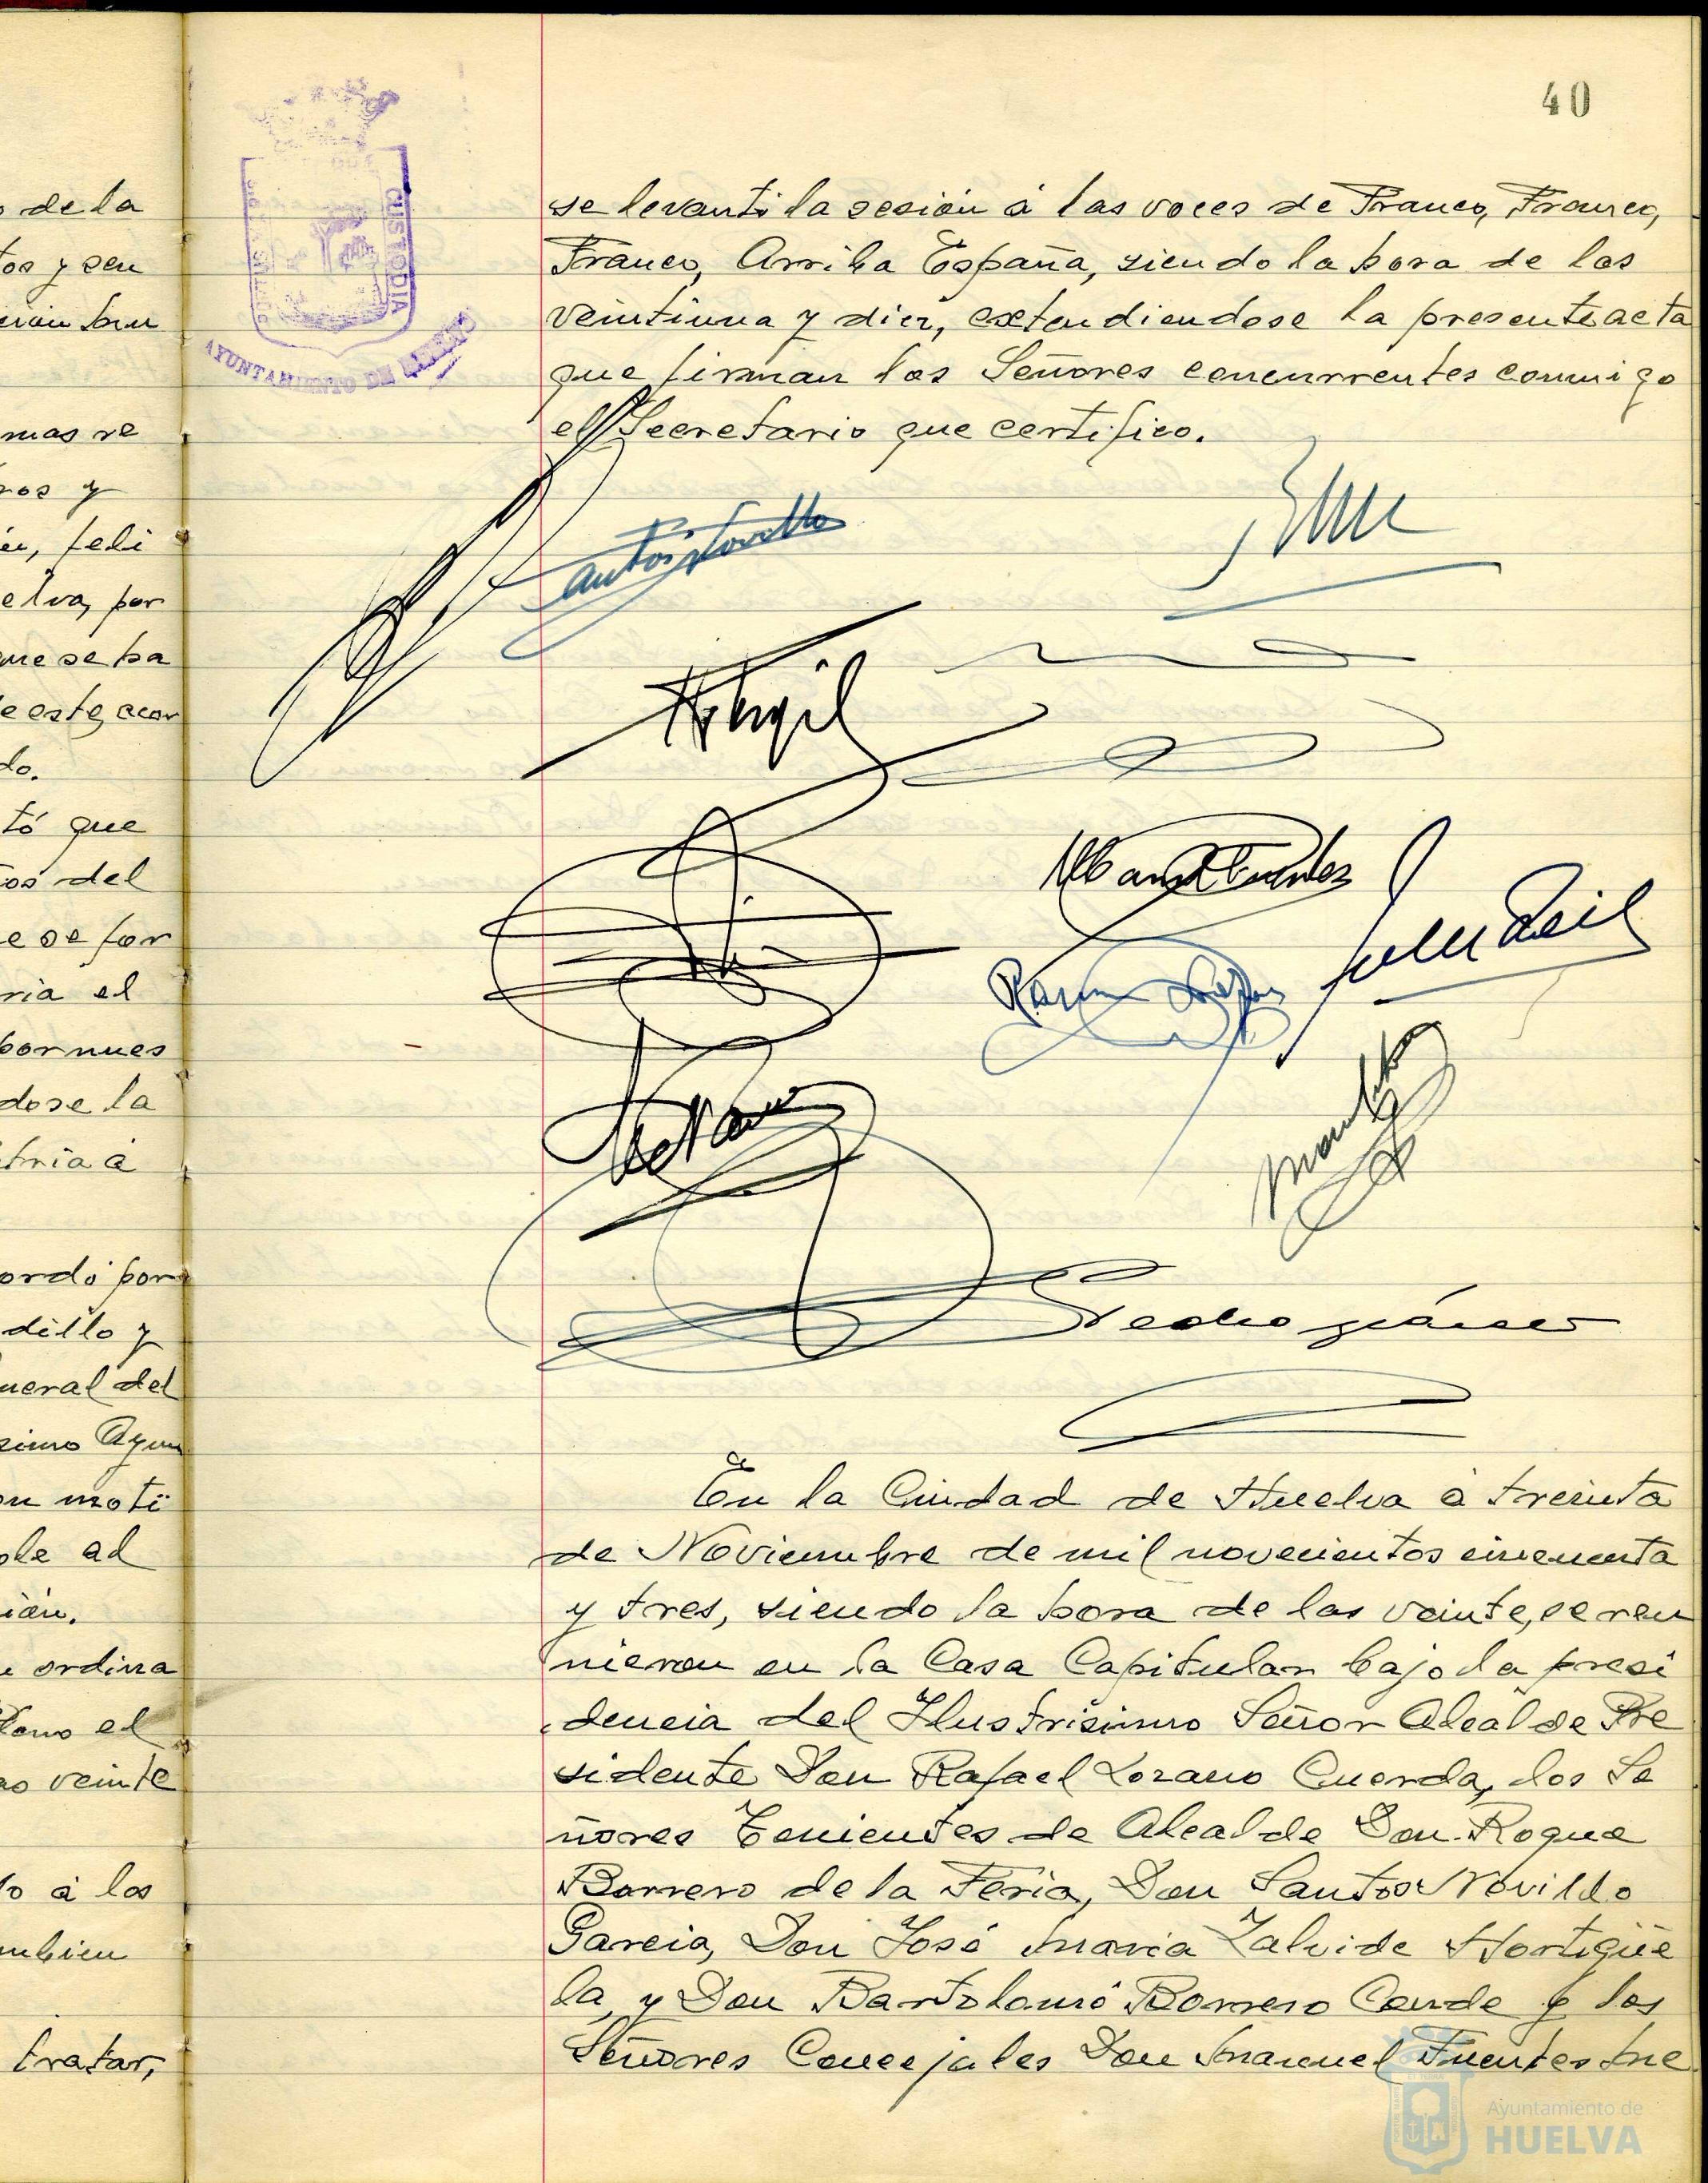 40
CUSTODIA
AYUNTAMIENTO DE
o de la
tos y sen
mas re
ros y
elva, por
que se ha
e este acor
do.
tó que
tos del
e se for
ria el
por nues
dose la
tria á
ordó por
dillo y
neral del
simo Ayun
on moti
ole al
ión.
ordina
Pleno el
veinte
á los
mbien
tratar,
se levantó la sesión á las voces de Franco, Franco,
Franco, Arriba España, siendo la hora de las
veintiuna y diez, extendiendose la presente acta
que firman los Señores concurrentes conmigo
el Secretario que certifico.
En la Ciudad de Huelva á treinta
de Noviembre de mil novecientos cincuenta
y tres, siendo la hora de las veinte, se reu
nieron en la Casa Capitular bajo la presi
dencia del Ilustrisimo Señor Alcalde Pre
sidente Don Rafael Lozano Cuerda, los Se
ñores Tenientes de Alcalde Don Roque
Borrero de la Feria, Don Santos Novillo
Garcia, Don José Maria Zalvide Hortigüe
la, y Don Bartolomé Borrero Conde y los
Señores Concejales Don Manuel Fuentes Me
Ayuntamiento de
HUELVA